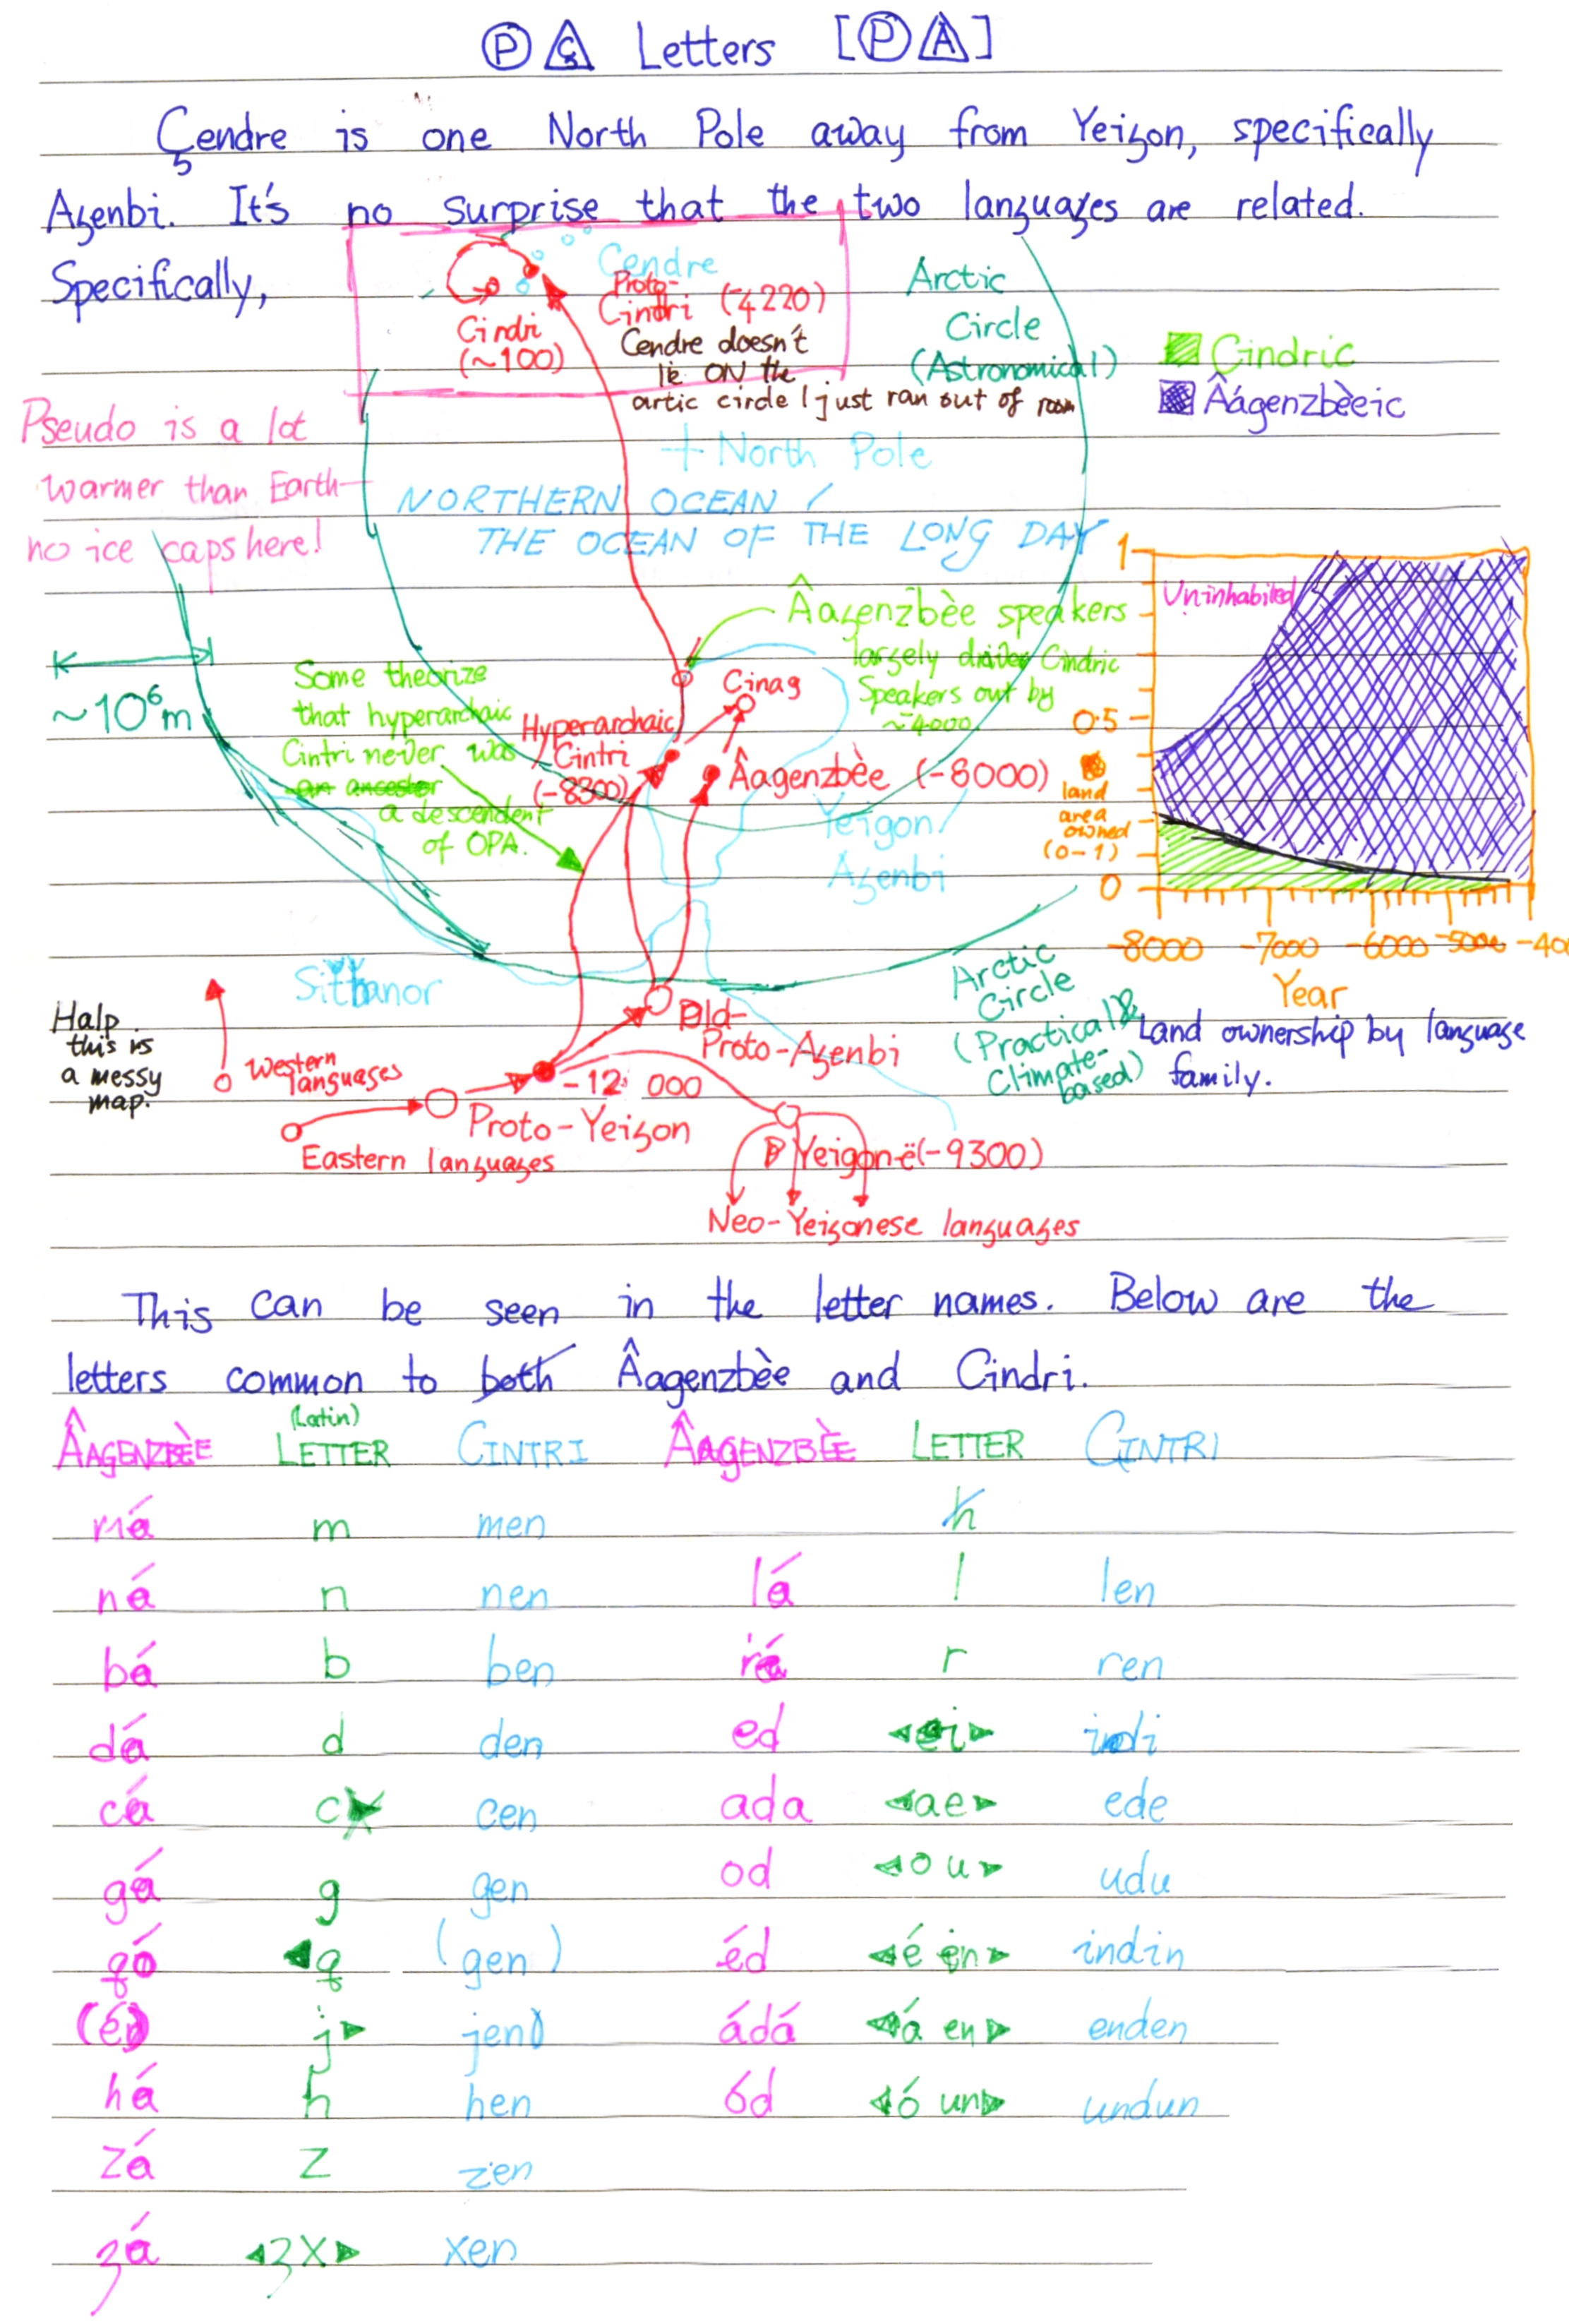 Ⓟ Ḉ Letters [Ⓟ A]
Çendre is one North Pole away from Yeigon, specifically
Agenbi. It's no surprise that the two languages are related.
Specifically,
Cendre
Proto-
Cintri (-4220)
Cindri
(~100)
Cendre doesn't
lie ON the
artic circle I just ran out of room
Arctic
Circle
(Astronomical)
Cindric
Âágenzbèeic
Pseudo is a lot
warmer than Earth—
no ice caps here!
+ North Pole
NORTHERN OCEAN /
THE OCEAN OF THE LONG DAY
~10⁶m
Some theorize
that hyperarchaic
Cintri never was
an ancestor
a descendent
of OPA.
Hyperarchaic
Cintri
(-8300)
Cinag
Âagenzbèe speakers
largely drived Cindric
Speakers out by
~-4000
Âagenzbèe (-8000)
Yeigon/
Agenbi
1
0.5
0
Uninhabited
land
area
owned
(0-1)
-8000 -7000 -6000 -5000 -400
Year
Land ownership by language
family.
Sittanor
Arctic
Circle
(Practical &
Climate-
based)
Halp
this is
a messy
map.
Western
languages
Eastern languages
Proto-Yeigon
-12 000
Old-
Proto-Agenbi
Yeigonë (-9300)
Neo-Yeigonese languages
This can be seen in the letter names. Below are the
letters common to both Âagenzbèe and Cindri.
ÂAGENZBÈE (Latin) LETTER CINTRI ÂAGENZBÈE LETTER CINTRI
má m men h
ná n nen lá l len
bá b ben rá r ren
dá d den ed ◄ei► indi
cá c cen ada ◄ae► ede
gá g gen od ◄o u► udu
qó ◄q (gen) éd ◄é in► indin
j► jen ádá ◄á en► enden
há h hen ód ◄ó un► undun
zá z zen
ʒá ◄ʒ x► xen